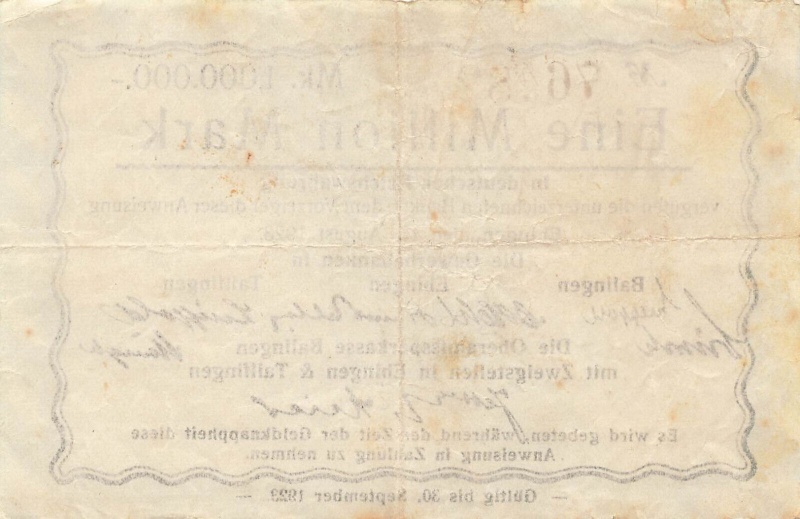 Nº 76 Mk. 1.000.000.-
Eine Million Mark
in deutscher Reichswährung
vergüten die unterzeichneten Banken dem Vorzeiger dieser Anweisung
Ebingen, den August 1923
Die Gewerbebanken in
Balingen Ebingen Tailfingen
Die Oberamtssparkasse Balingen
mit Zweigstellen in Ebingen & Tailfingen
Es wird gebeten, während der Zeit der Geldknappheit diese
Anweisung in Zahlung zu nehmen.
— Gültig bis 30. September 1923 —